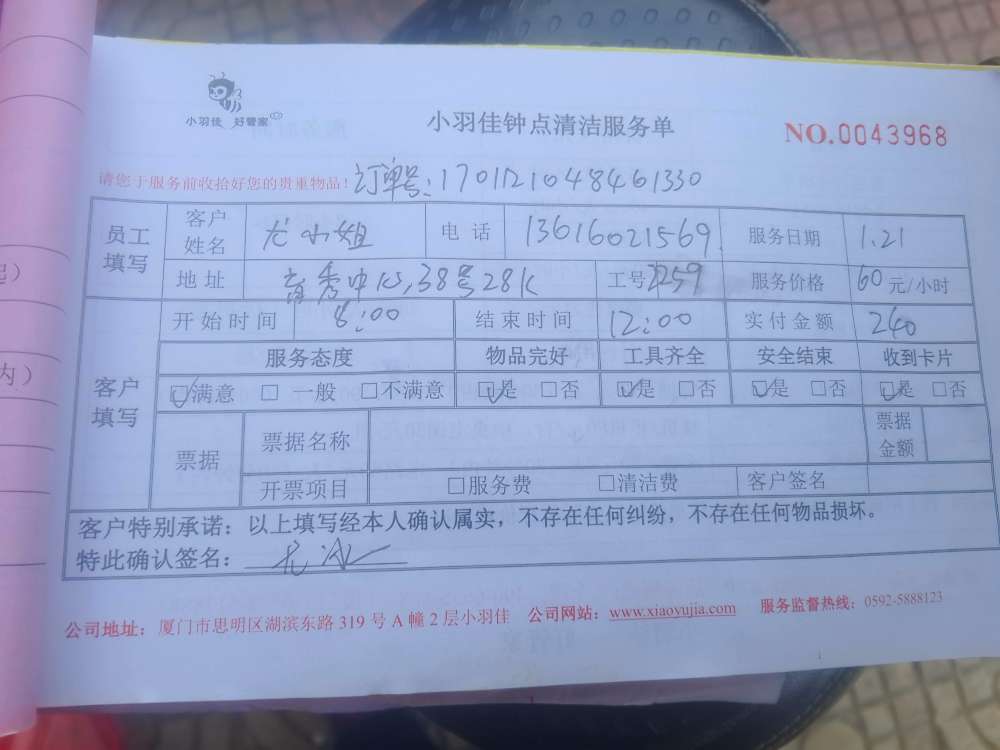 小羽佳 好管家
小羽佳钟点清洁服务单
NO.0043968
请您于服务前收拾好您的贵重物品! 订单号:1701121048461330
员工填写 客户姓名 尤小姐 电话 13616021569 服务日期 1.21
地址 育秀中心,38号28K 工号 1259 服务价格 60元/小时
客户填写 开始时间 8:00 结束时间 12:00 实付金额 240
服务态度 物品完好 工具齐全 安全结束 收到卡片
☑满意 □一般 □不满意 ☑是 □否 ☑是 □否 ☑是 □否 ☑是 □否
票据 票据名称 票据金额
开票项目 □服务费 □清洁费 客户签名
客户特别承诺:以上填写经本人确认属实,不存在任何纠纷,不存在任何物品损坏。
特此确认签名:
公司地址:厦门市思明区湖滨东路 319 号 A 幢 2 层小羽佳 公司网站:www.xiaoyujia.com 服务监督热线:0592-5888123
起)
内)